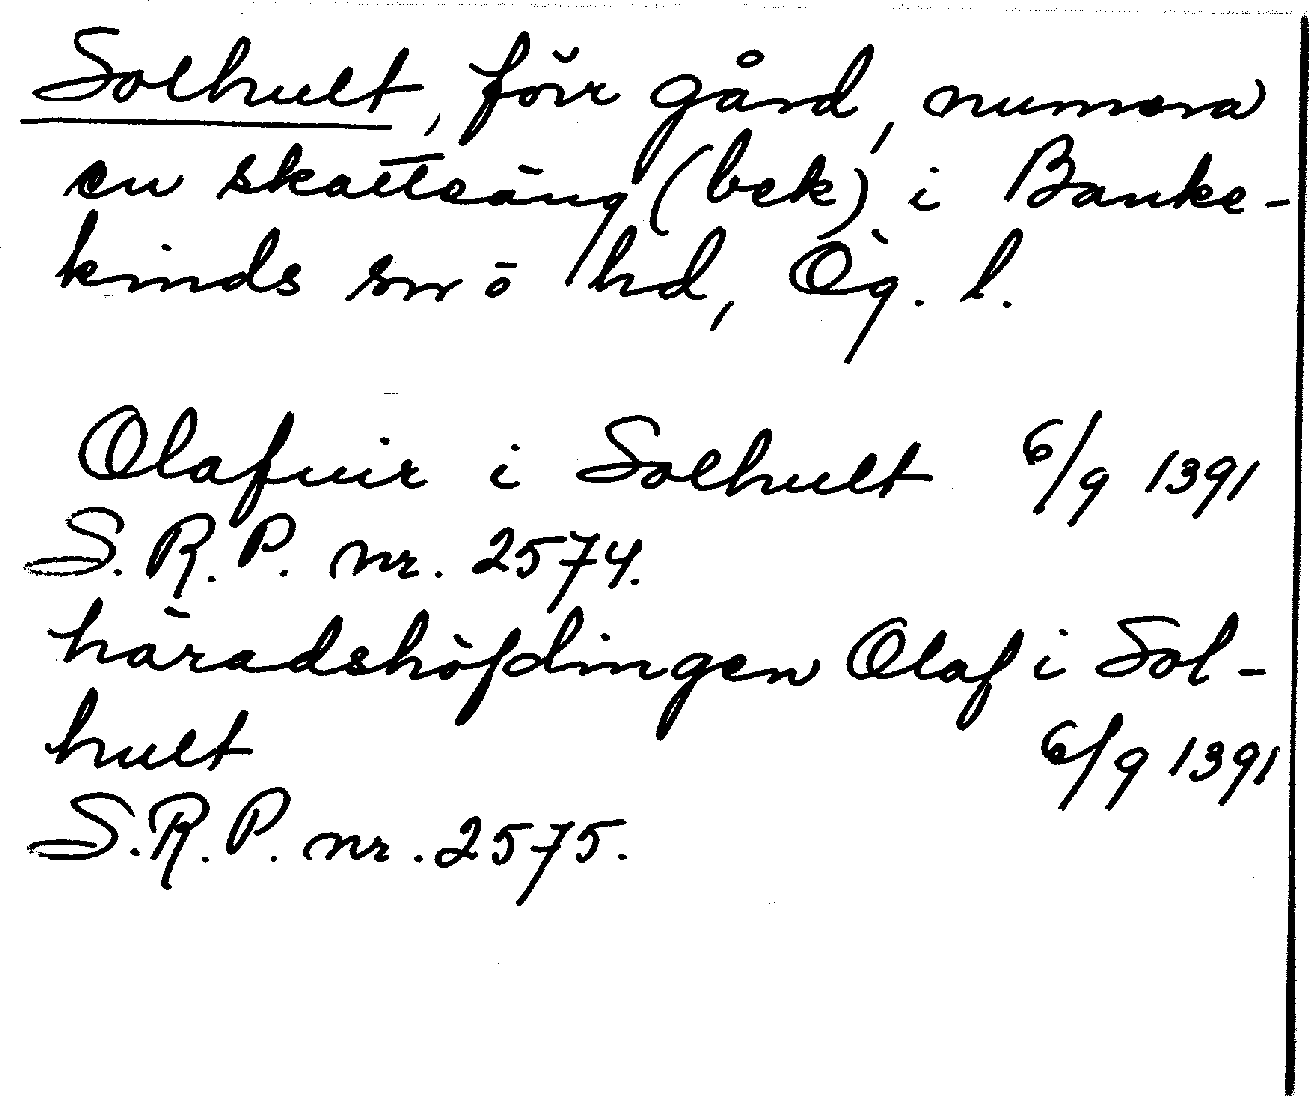 Solhult, förr gård, numera
en skatteäng (bek) i Banke-
kinds sn o hd, Ög. l.
Olafuir i Solhult 6/9 1391
S.R.P. nr. 2574.
häradshöfdingen Olaf i Sol-
hult 6/9 1391
S.R.P. nr. 2575.